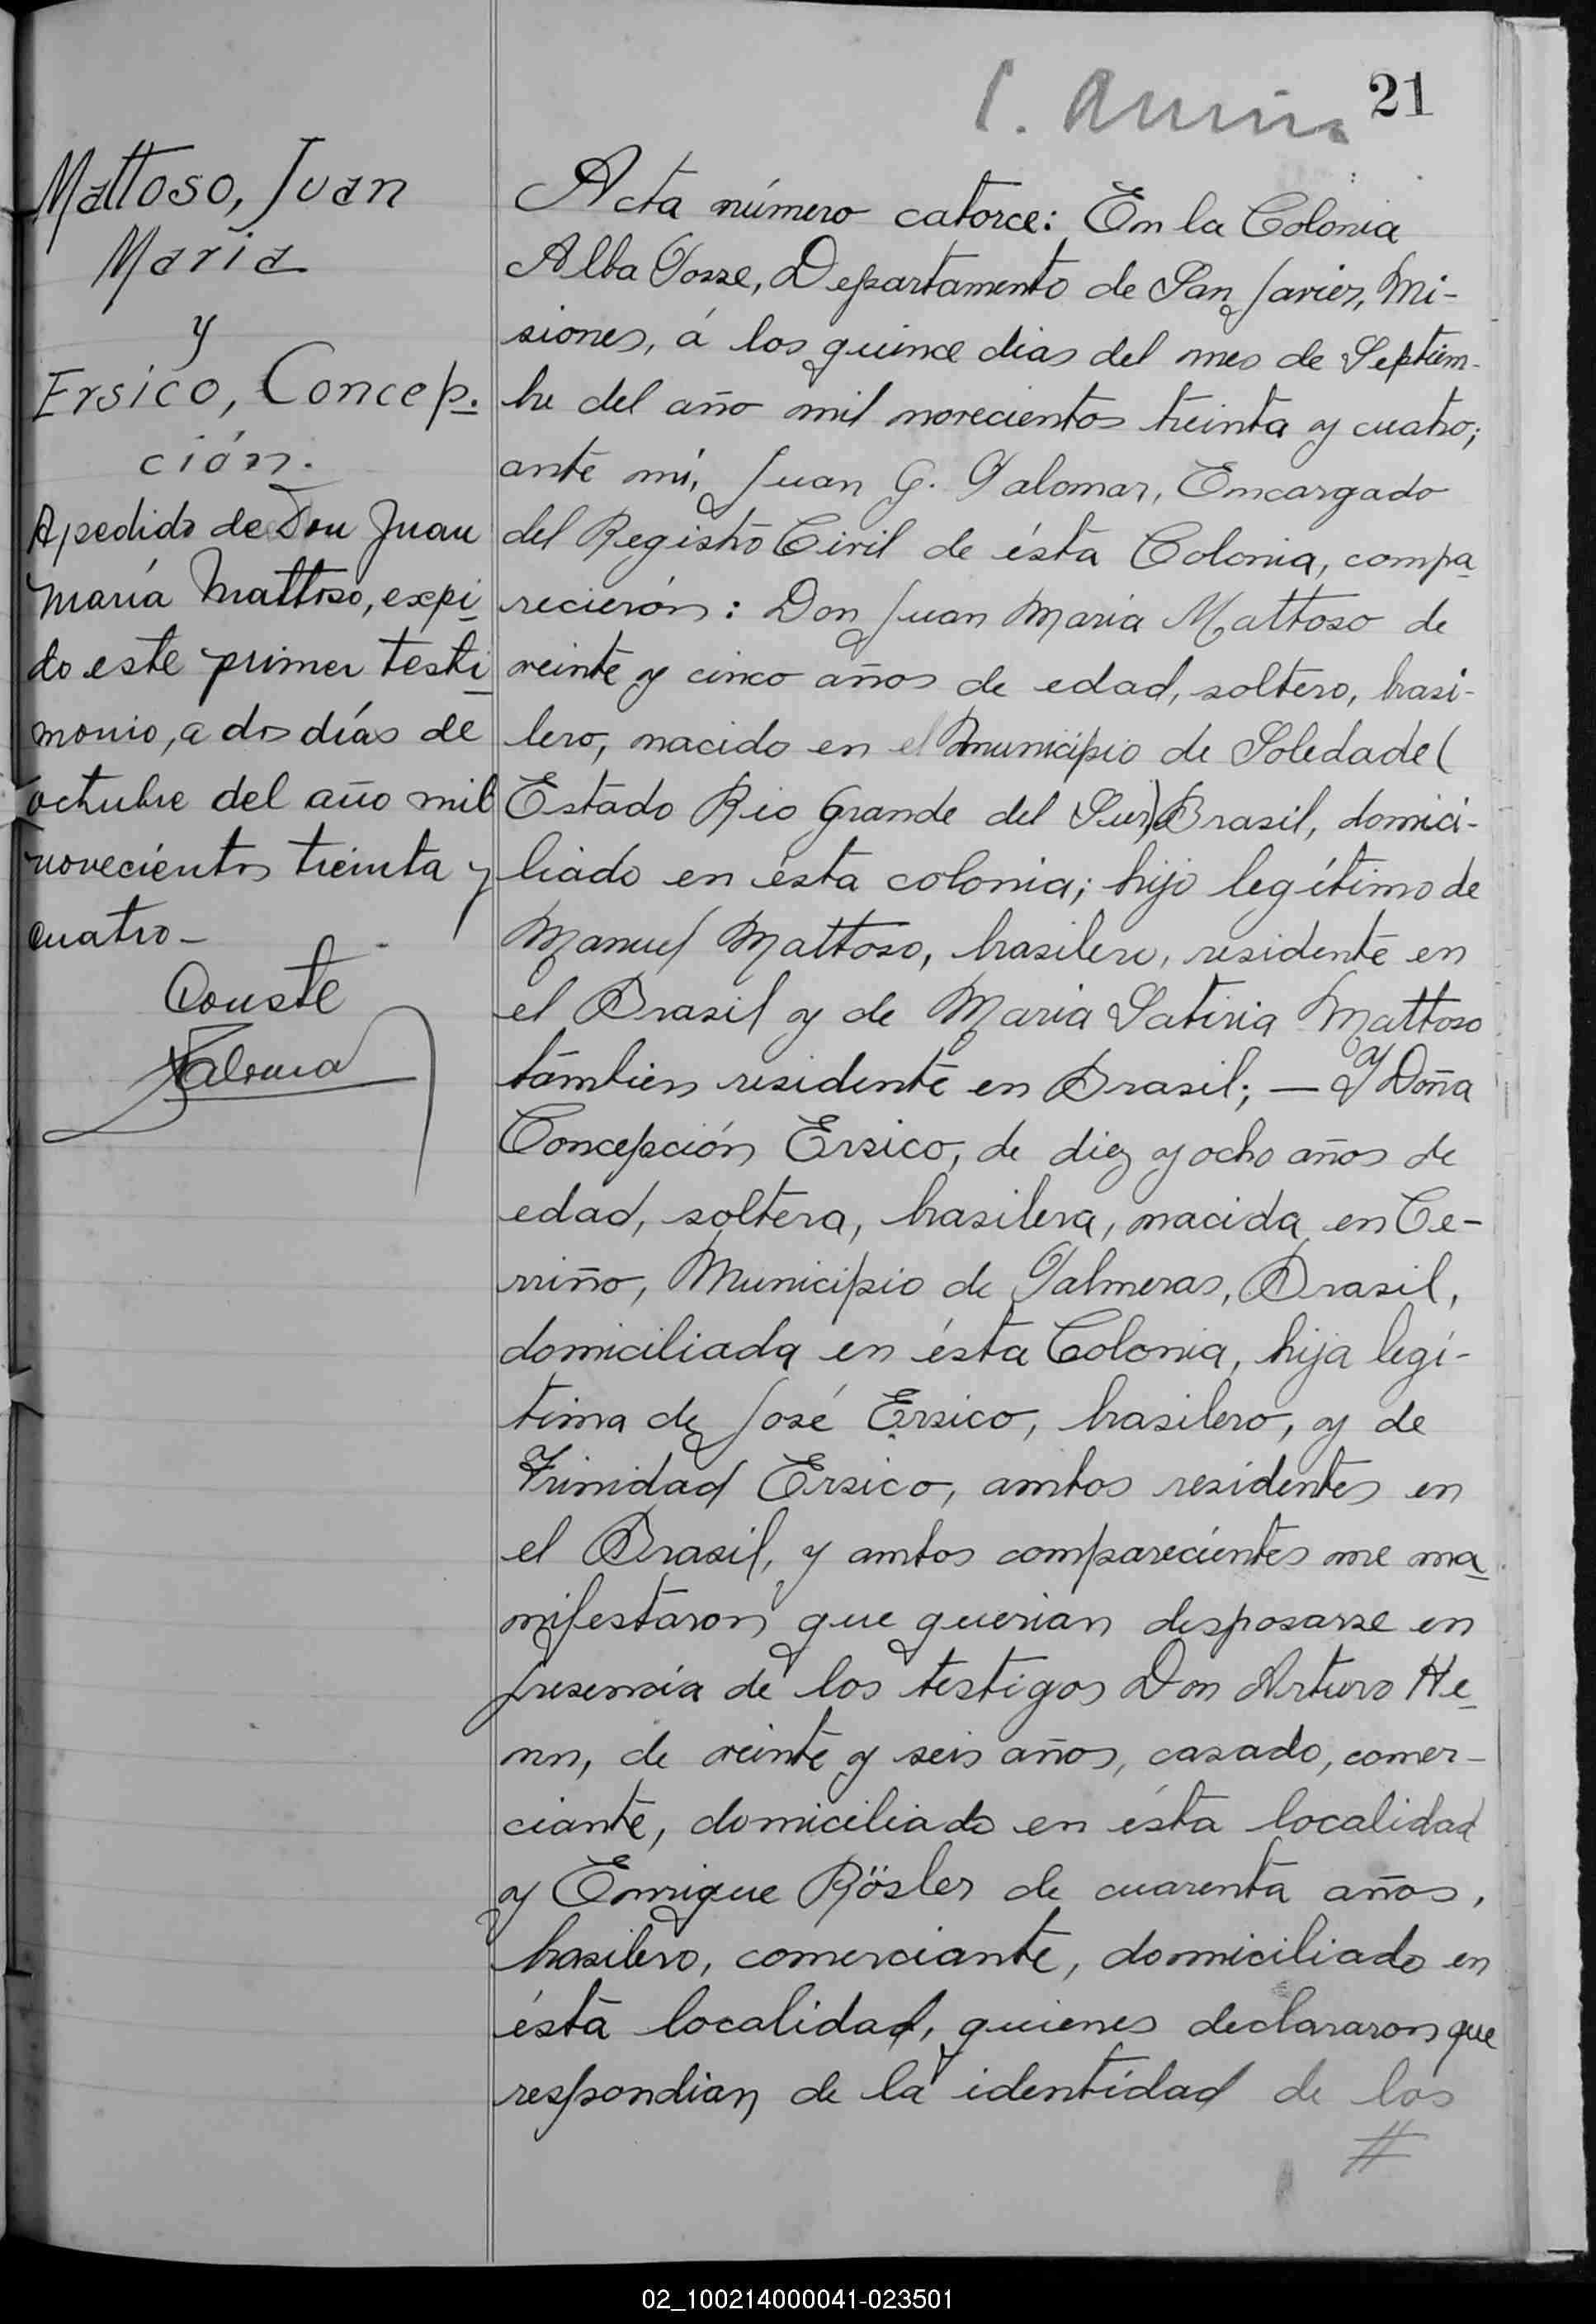 21
Mattoso, Juan
Maria
y
Ersico, Concep-
ción.
A pedido de Don Juan
María Mattoso, expi-
do este primer testi-
monio, a dos días de
octubre del año mil
novecientos treinta y
cuatro-
Conste
Acta número catorce: En la Colonia
Alba Posse, Departamento de San Javier, Mi-
siones, á los quince dias del mes de Septiem-
bre del año mil novecientos treinta y cuatro;
ante mí, Juan G. Palomar, Encargado
del Registro Civil de ésta Colonia, compa-
recierón: Don Juan Maria Mattoso de
veinte y cinco años de edad, soltero, brasi-
lero, nacido en el Municipio de Soledade (
Estado Rio Grande del Sur) Brasil, domici-
liado en ésta colonia; hijo legítimo de
Manuel Mattoso, brasilero, residente en
el Brasil y de Maria Satiria Mattoso
támbien residente en Brasil; — y Doña
Concepción Ersico, de diez y ocho años de
edad, soltera, brasilera, nacida en Ce-
rriño, Municipio de Palmeras, Brasil,
domiciliada en ésta Colonia, hija legí-
tima de José Ersico, brasilero, y de
Trinidad Ersico, ambos residentes en
el Brasil, y ambos comparecientes me ma-
nifestaron que querian desposarse en
presencia de los testigos Don Arturo He-
nn, de veinte y seis años, casado, comer-
ciante, domiciliado en ésta localidad
y Enrique Rösler de cuarenta años,
brasilero, comerciante, domiciliado en
ésta localidad, quienes declararon que
respondian de la identidad de los
#
02_100214000041-023501